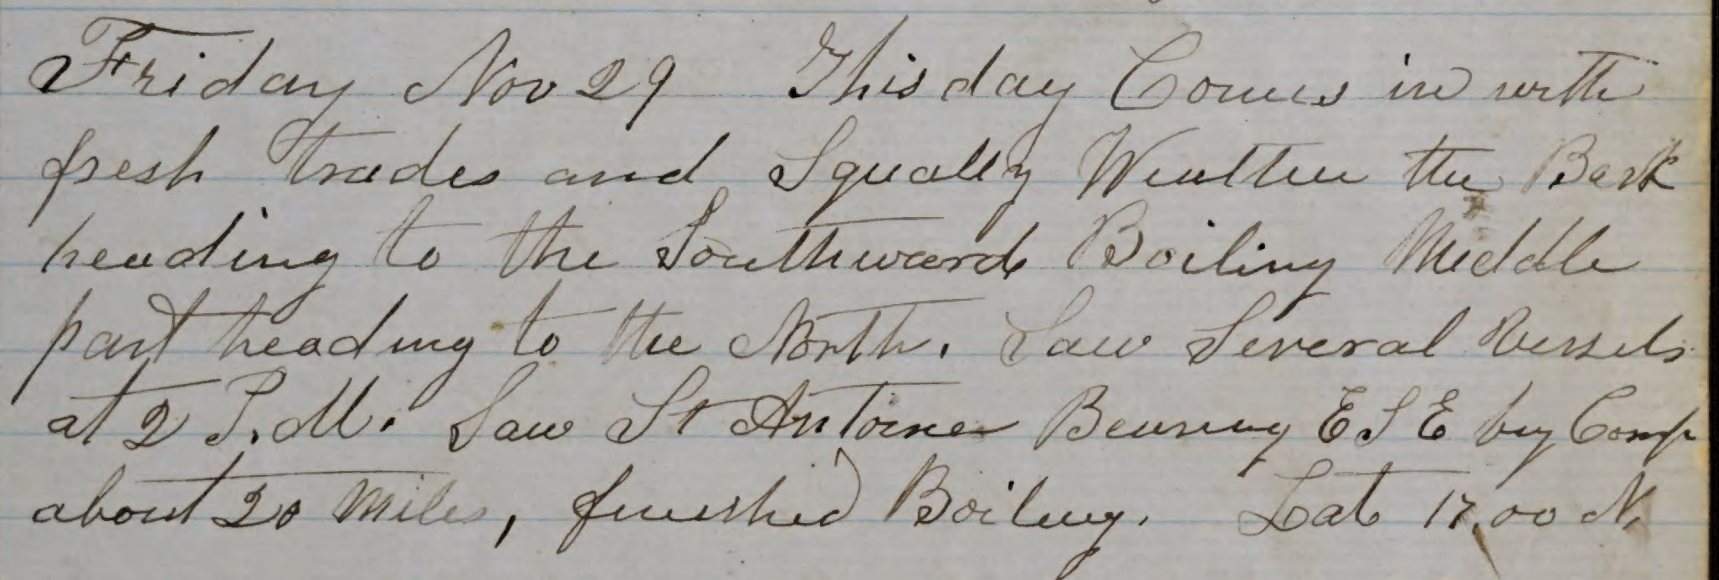 Friday Nov 29 This day Comes in with
fresh trades and Squally Weather the Bark
heading to the Southward Boiling Middle
part heading to the North. Saw Several Vessels
at 2 P.M. Saw St Antoine Bearing E S E by Comp
about 20 Miles, finished Boiling. Lat 17.00 N.